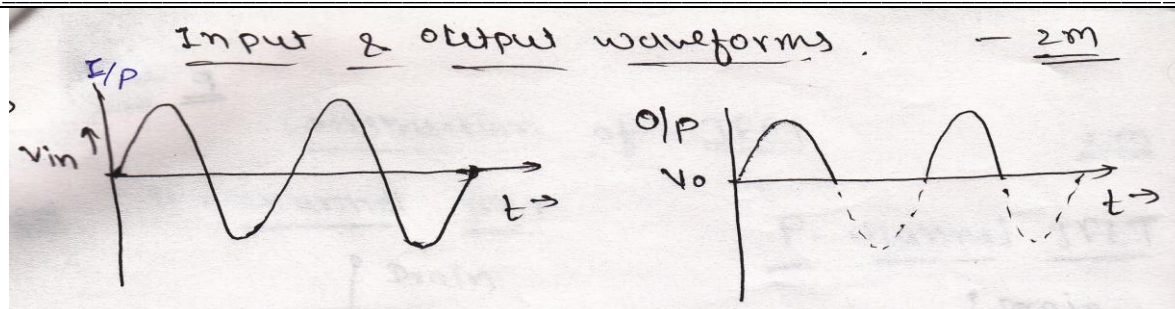 Input & Output waveforms. - 2m
I/P
Vin ↑
t →
O/P
Vo
t →